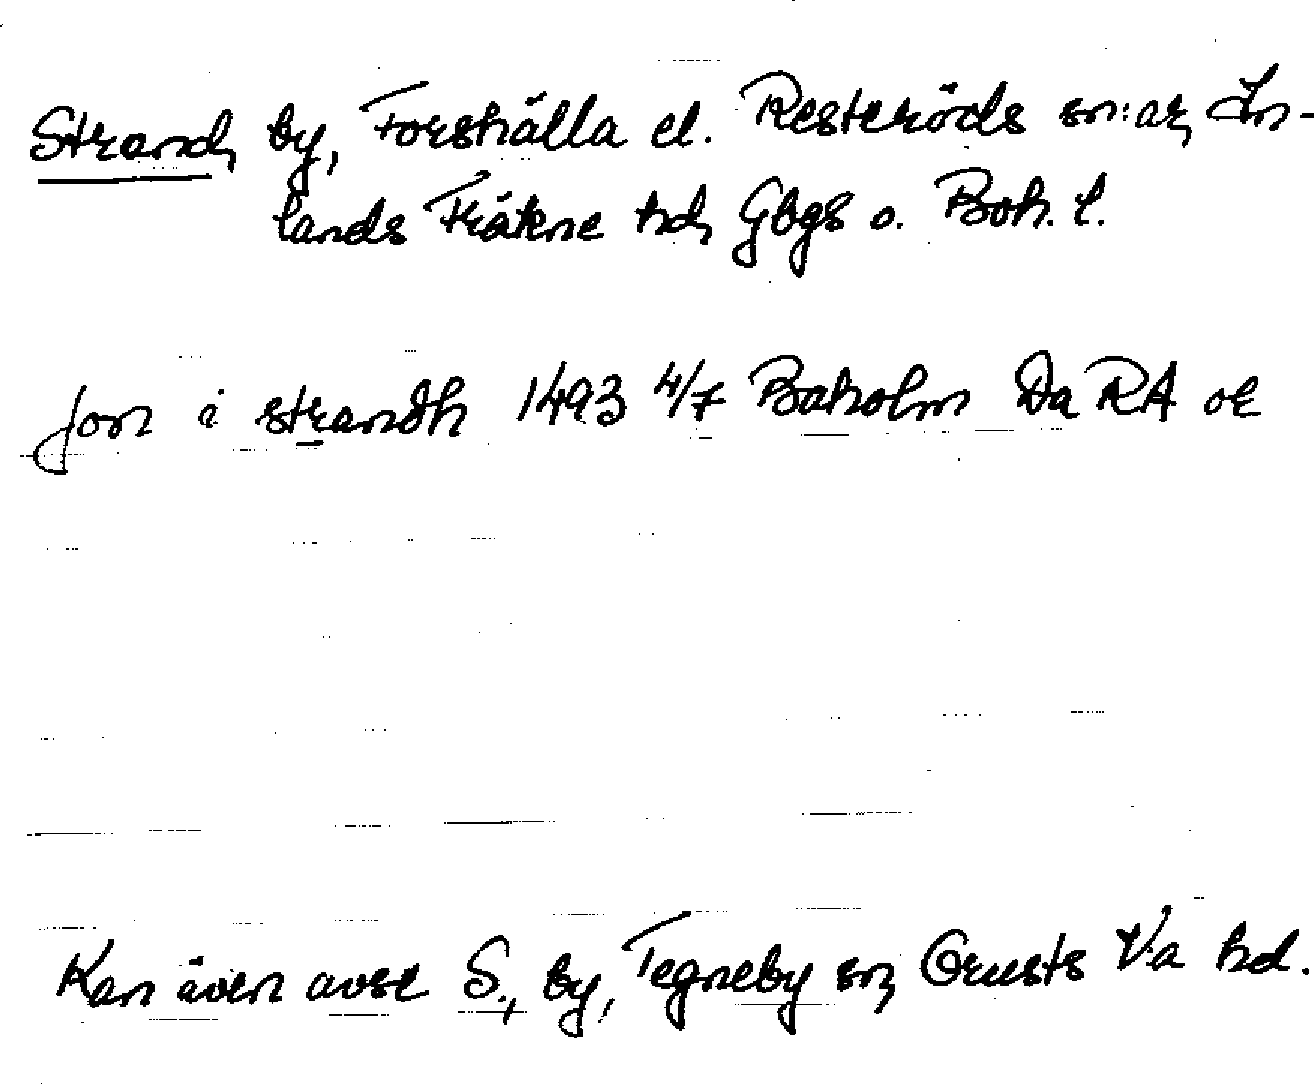 Strand, by, Forshälla el. Resteröds sn:ar, In-
lands Fräkne hd, Gbgs o. Boh. l.
jon i strandh 1493 4/7 Baholm DaRA or
Kan även avse S., by, Tegneby sn, Orusts Va hd.